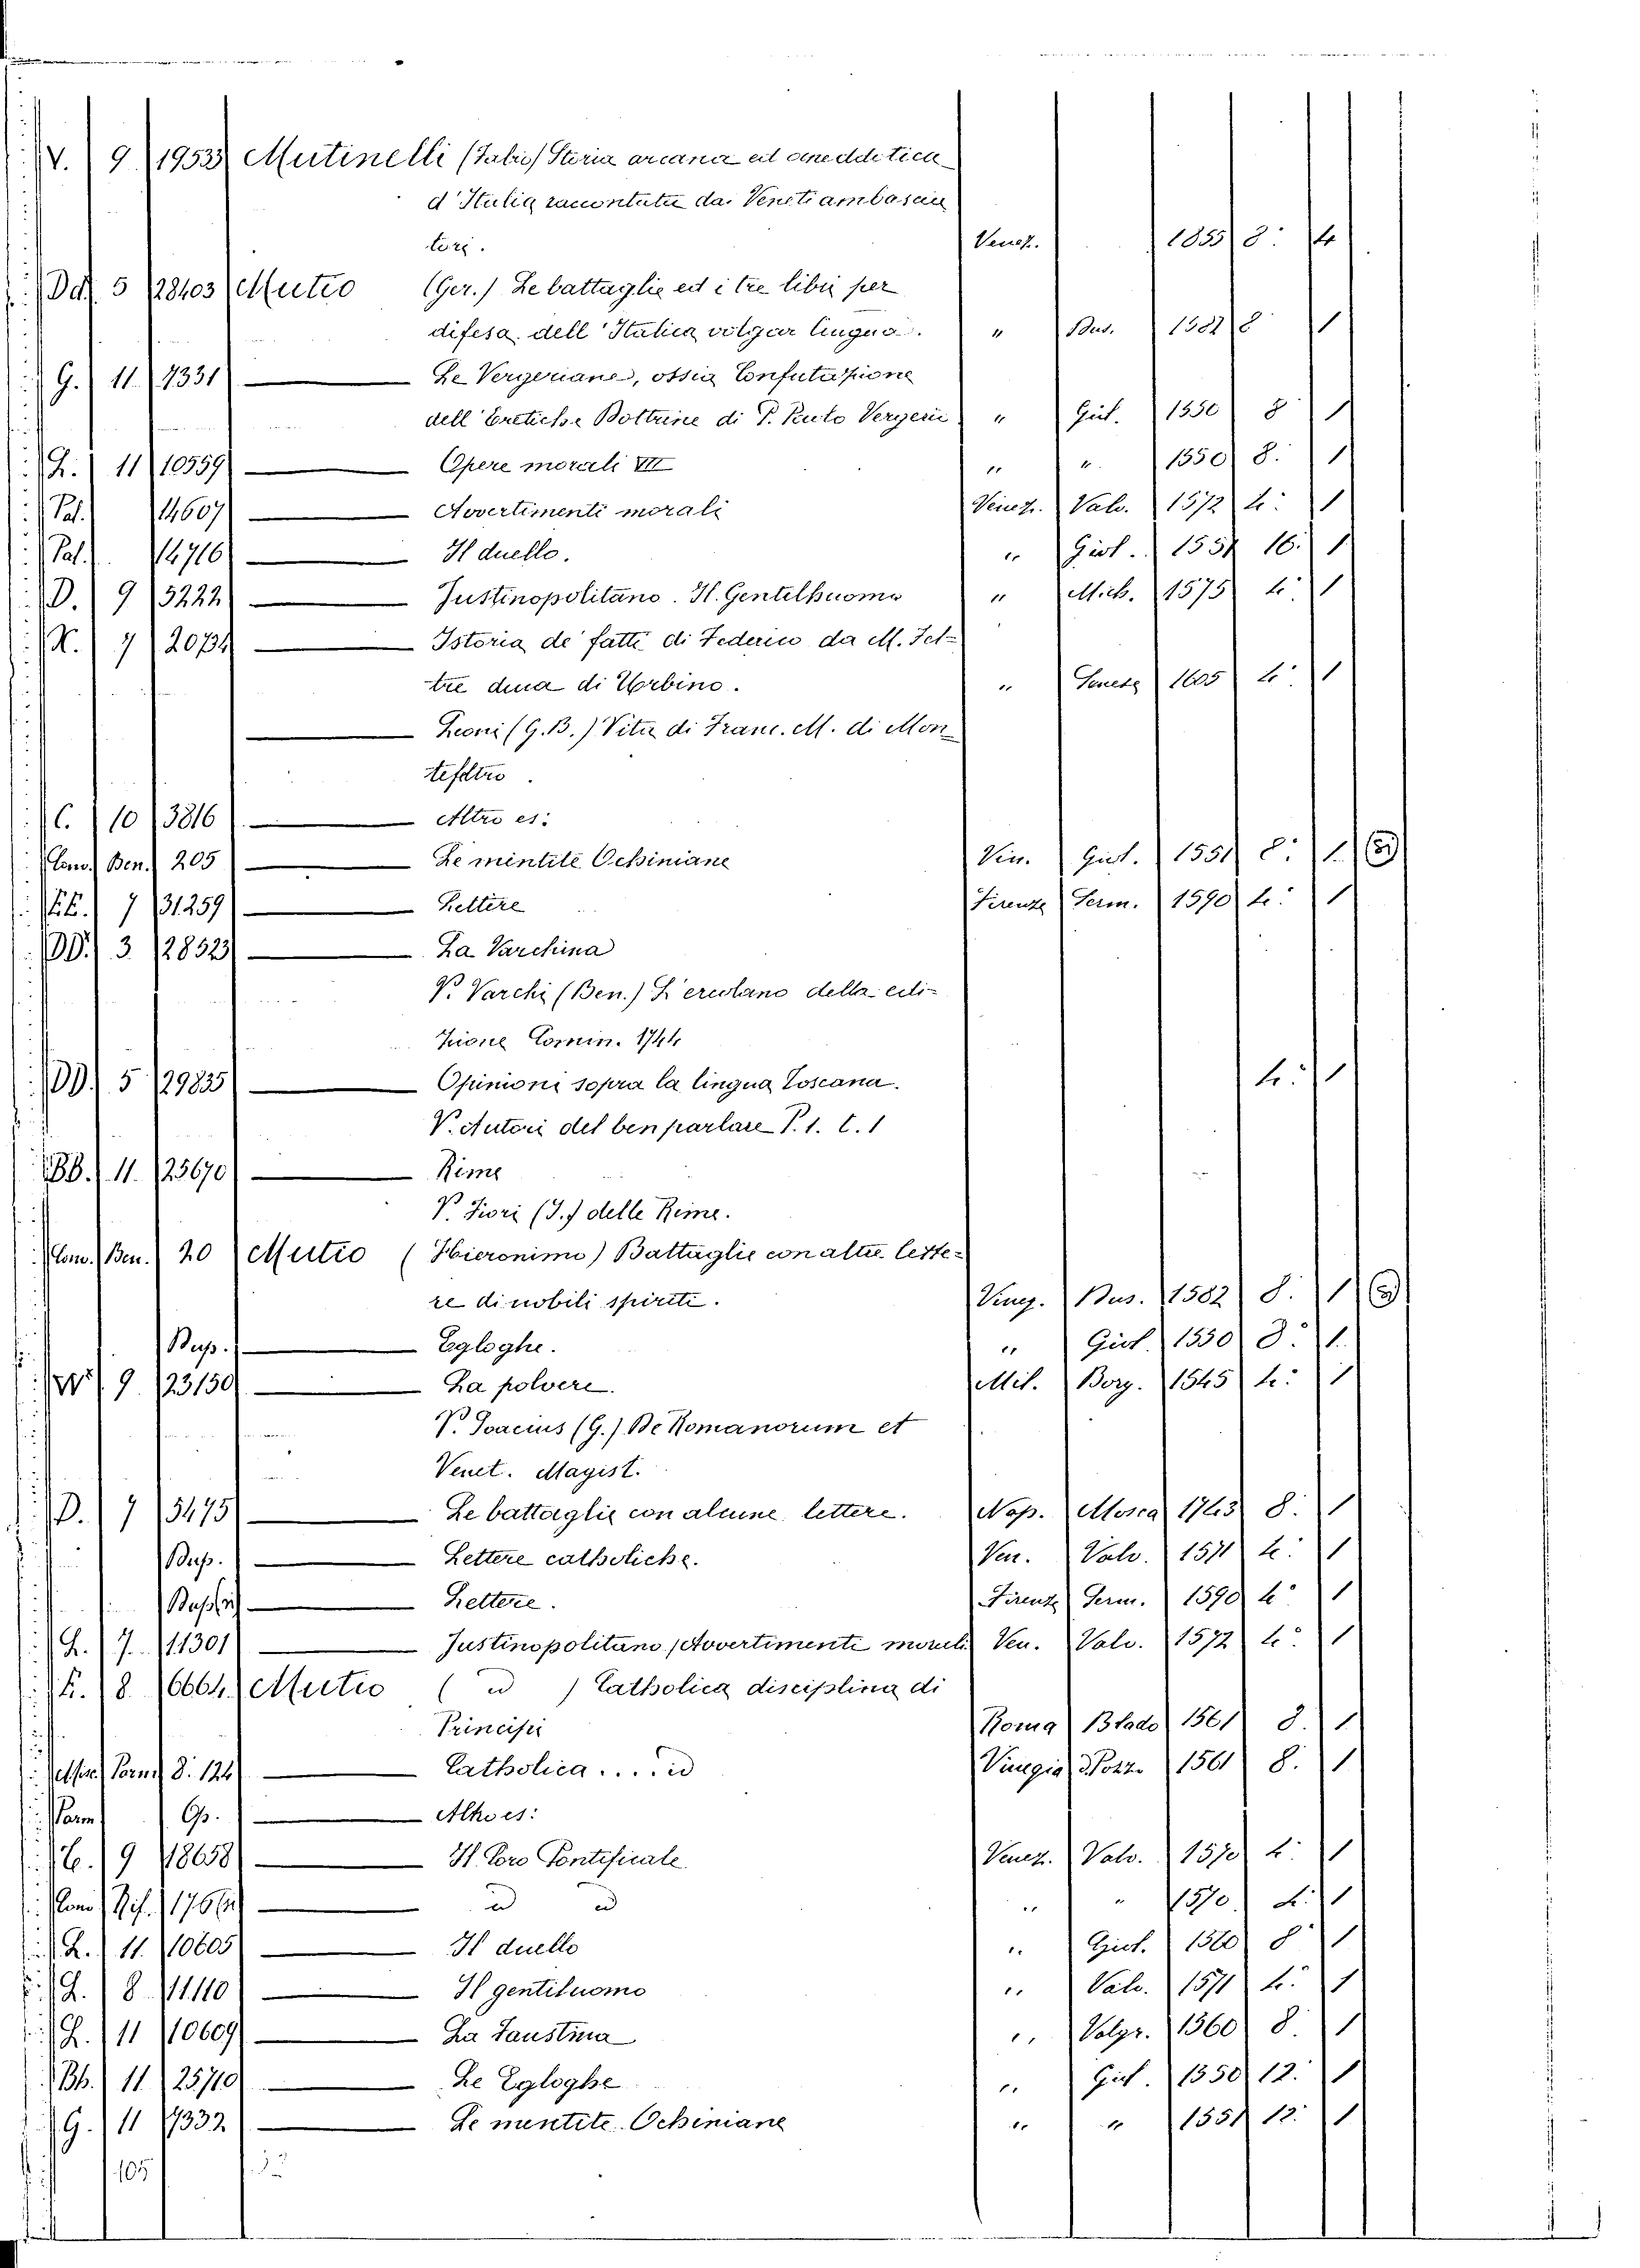 V. 9 1953 Mutinelli (Fabio) Storia arcana ed aneddotica
d'Italia raccontata dai Veneti ambascia
tori. Venez. 1855 8: 4
Dd. 5 28403 Mutio (Ger.) Le battaglie ed i tre libri per
difesa dell'Italica volgar lingua. " Bus. 1582 8 1
G. 11 7331 — Le Vergeriane, ossia Confutazione
dell'Eretiche Dottrine di P. Paulo Vergerii " Giol. 1550 8 1
L. 11 10559 — Opere morali VII " " 1550 8. 1
Pal. 14607 — Avertimenti morali Venez. Valv. 1572 4: 1
Pal. 14716 — Il duello. " Giol. 1554 16. 1
D. 9 5222 — Justinopolitano. Il Gentelhuomo " Mich. 1575 4: 1
N. 7 2074 — Istoria de' fatti di Federico da M. Fel-
tre duca di Urbino. " 1605 4: 1
— Leoni (G.B.) Vita di Franc. M. di Mon
tefeltro.
C. 10 3816 — Altro es:
Com. Ben. 205 — Le mintite Ochiniane Vin. Giol. 1551 8: 1
7 31259 — Lettere Firenze Serm. 1590 4: 1
DD. 3 28523 — La Varchina
V. Varchi (Ben.) L'ercolano della edi-
zione Comin. 1744
DD. 5 29835 — Opinioni sopra la lingua Toscana. 4: 1
V. Autori del ben parlare P. 1. t. 1
BB. 11. 25670 — Rime
V. Fiori (I.) delle Rime.
Com. Ben. 20 Mutio (Hieronimo) Battaglie con altre lette-
re di nobili spiriti. Vineg. Dus. 1582 8. 1
— Egloghe. " Giol. 1550 8. 1
9. 23150 — La polvere. Mil. Borg. 1545 4: 1
V. Goacius (G.) De Romanorum et
Venet. Magist.
D. 7 5475 — Le battaglie con alcune lettere. Nap. Mosca 1743 8. 1
— Lettere catholiche. Ven. Valv. 1571 4: 1
— Lettere. Firenze Germ. 1590 4: 1
L. 7. 11301 — Justinopolitano, Avertimenti morali Ven. Valv. 1572 4: 1
K. 8. 6664. Mutio ( id ) Catholica disciplina di
Principi Roma Blado 1561 8. 1
8. 124 — Catholica .... id Vinegia 1561 8. 1
Parm Op. — Altro es:
C. 9 18658 — Il Coro Pontificale Venez. Valv. 1570 4: 1
1766 — id id " " 1570. 4: 1
L. 11. 10605 — Il duello " Giol. 1560 8 1
L. 8 11110 — Il gentiluomo " Valv. 1571 4: 1
L. 11 10609 — La Faustina " Valgr. 1560 8. 1
Bb. 11. 25710 — Le Egloghe " Giol. 1550 12. 1
G. 11 7332 — Le mentite Ochiniane " " 1551 12. 1
105